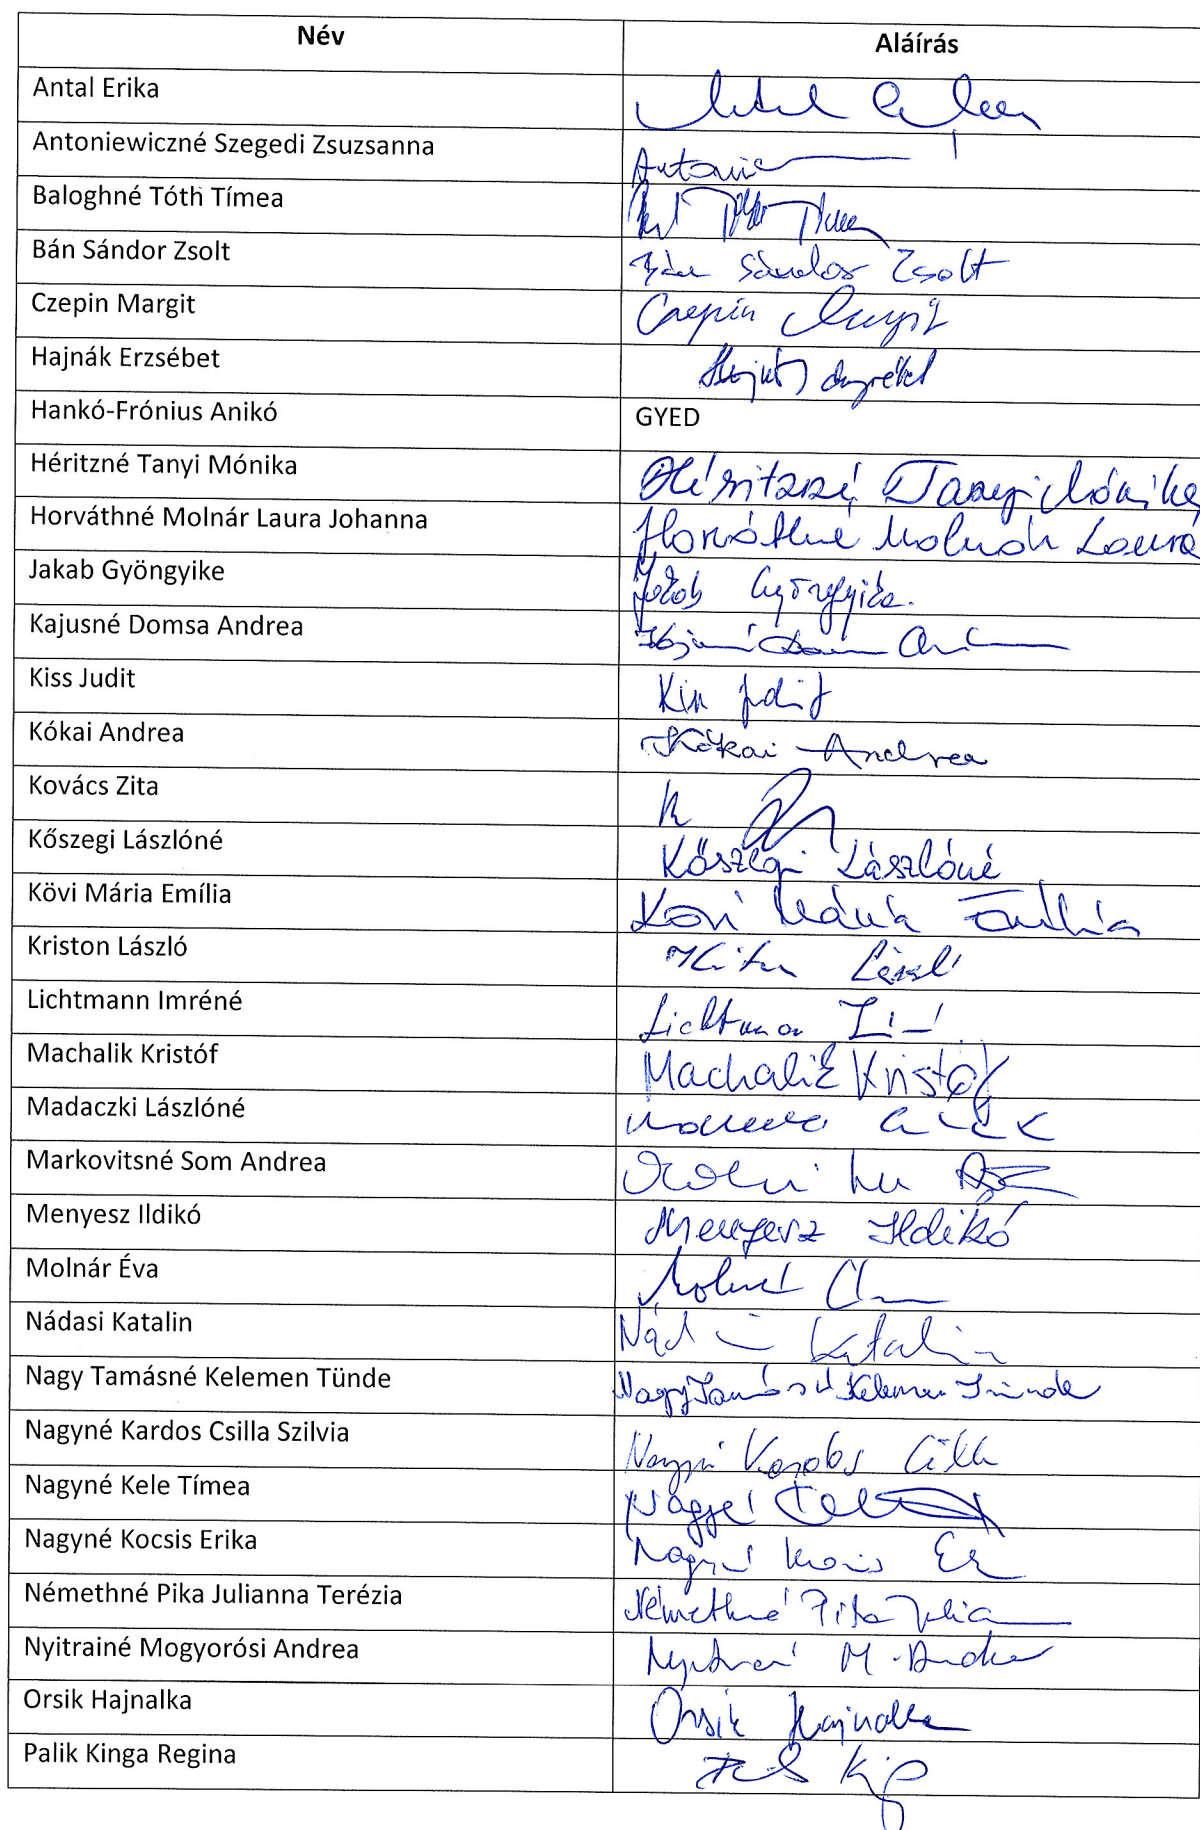 Név Aláírás
Antal Erika
Antoniewiczné Szegedi Zsuzsanna
Baloghné Tóth Tímea
Bán Sándor Zsolt Bán Sándor Zsolt
Czepin Margit Czepin Margit
Hajnák Erzsébet
Hankó-Frónius Anikó GYED
Héritzné Tanyi Mónika Héritzné Tanyi Mónika
Horváthné Molnár Laura Johanna Horváthné Molnár Laura
Jakab Gyöngyike Jakab Gyöngyike
Kajusné Domsa Andrea
Kiss Judit Kiss Judit
Kókai Andrea Kókai Andrea
Kovács Zita K
Kőszegi Lászlóné Kőszegi Lászlóné
Kövi Mária Emília Kövi Mária Emília
Kriston László László
Lichtmann Imréné
Machalik Kristóf Machalik Kristóf
Madaczki Lászlóné
Markovitsné Som Andrea
Menyesz Ildikó Menyesz Ildikó
Molnár Éva Molnár
Nádasi Katalin Katalin
Nagy Tamásné Kelemen Tünde Nagy Tamásné Kelemen Tünde
Nagyné Kardos Csilla Szilvia Nagyné Kardos Csilla
Nagyné Kele Tímea Nagyné
Nagyné Kocsis Erika Nagyné Kocsis
Némethné Pika Julianna Terézia Némethné Pika
Nyitrainé Mogyorósi Andrea Nyitrainé M. Andrea
Orsik Hajnalka Orsik Hajnalka
Palik Kinga Regina